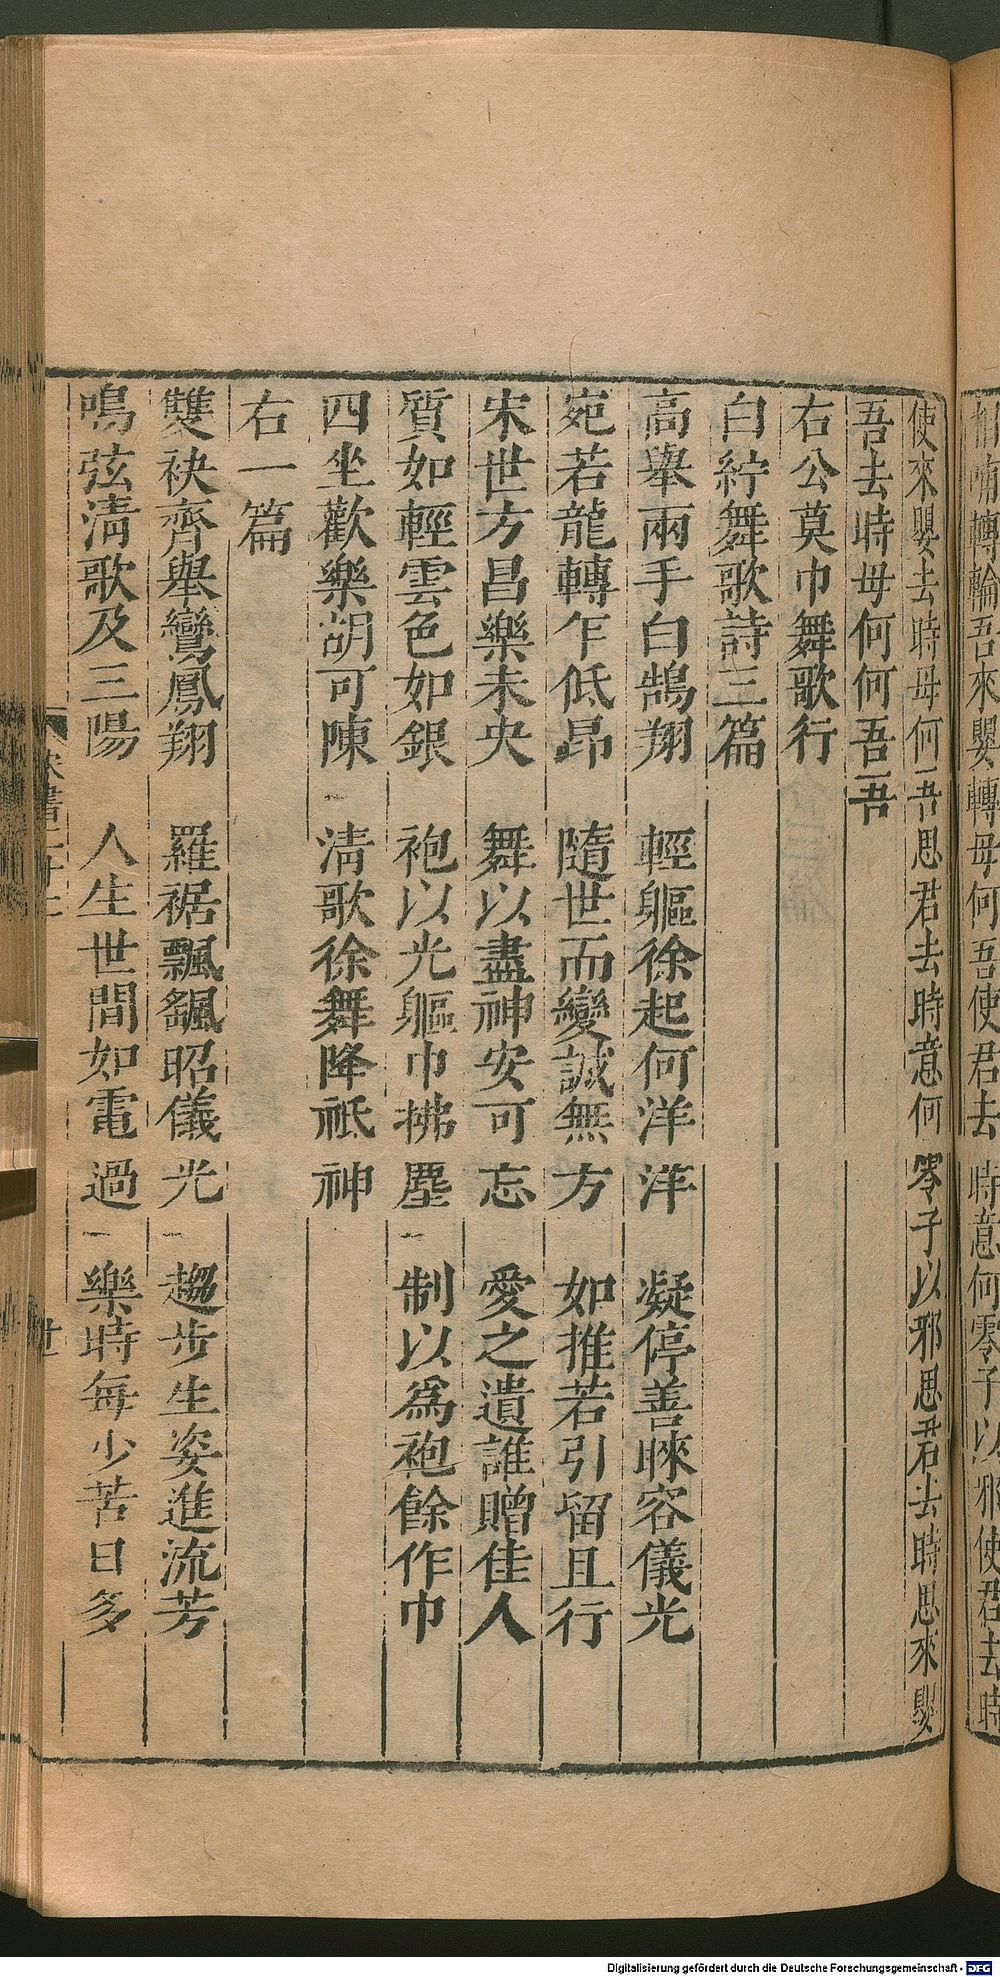 相哺轉輪吾來嬰轉母何吾使君去時意何零子以邪使君去時
使來嬰去時母何吾思君去時意何零子以邪思君去時思來嬰
吾去時母何何吾吾
右公莫巾舞歌行
白紵舞歌詩三篇
高舉兩手白鵠翔 輕軀徐起何洋洋 凝停善睞容儀光
宛若龍轉乍低昂 隨世而變誠無方 如推若引留且行
宋世方昌樂未央 舞以盡神安可忘 愛之遺誰贈佳人
質如輕雲色如銀 袍以光軀巾拂塵 制以為袍餘作巾
四坐歡樂胡可陳 清歌徐舞降祇神
右一篇
雙袂齊舉鸞鳳翔 羅裾飄颻昭儀光 趨步生姿進流芳
鳴弦清歌及三陽 人生世間如電過 樂時每少苦日多
宋書二十二
廿
Digitalisierung gefördert durch die Deutsche Forschungsgemeinschaft - DFG